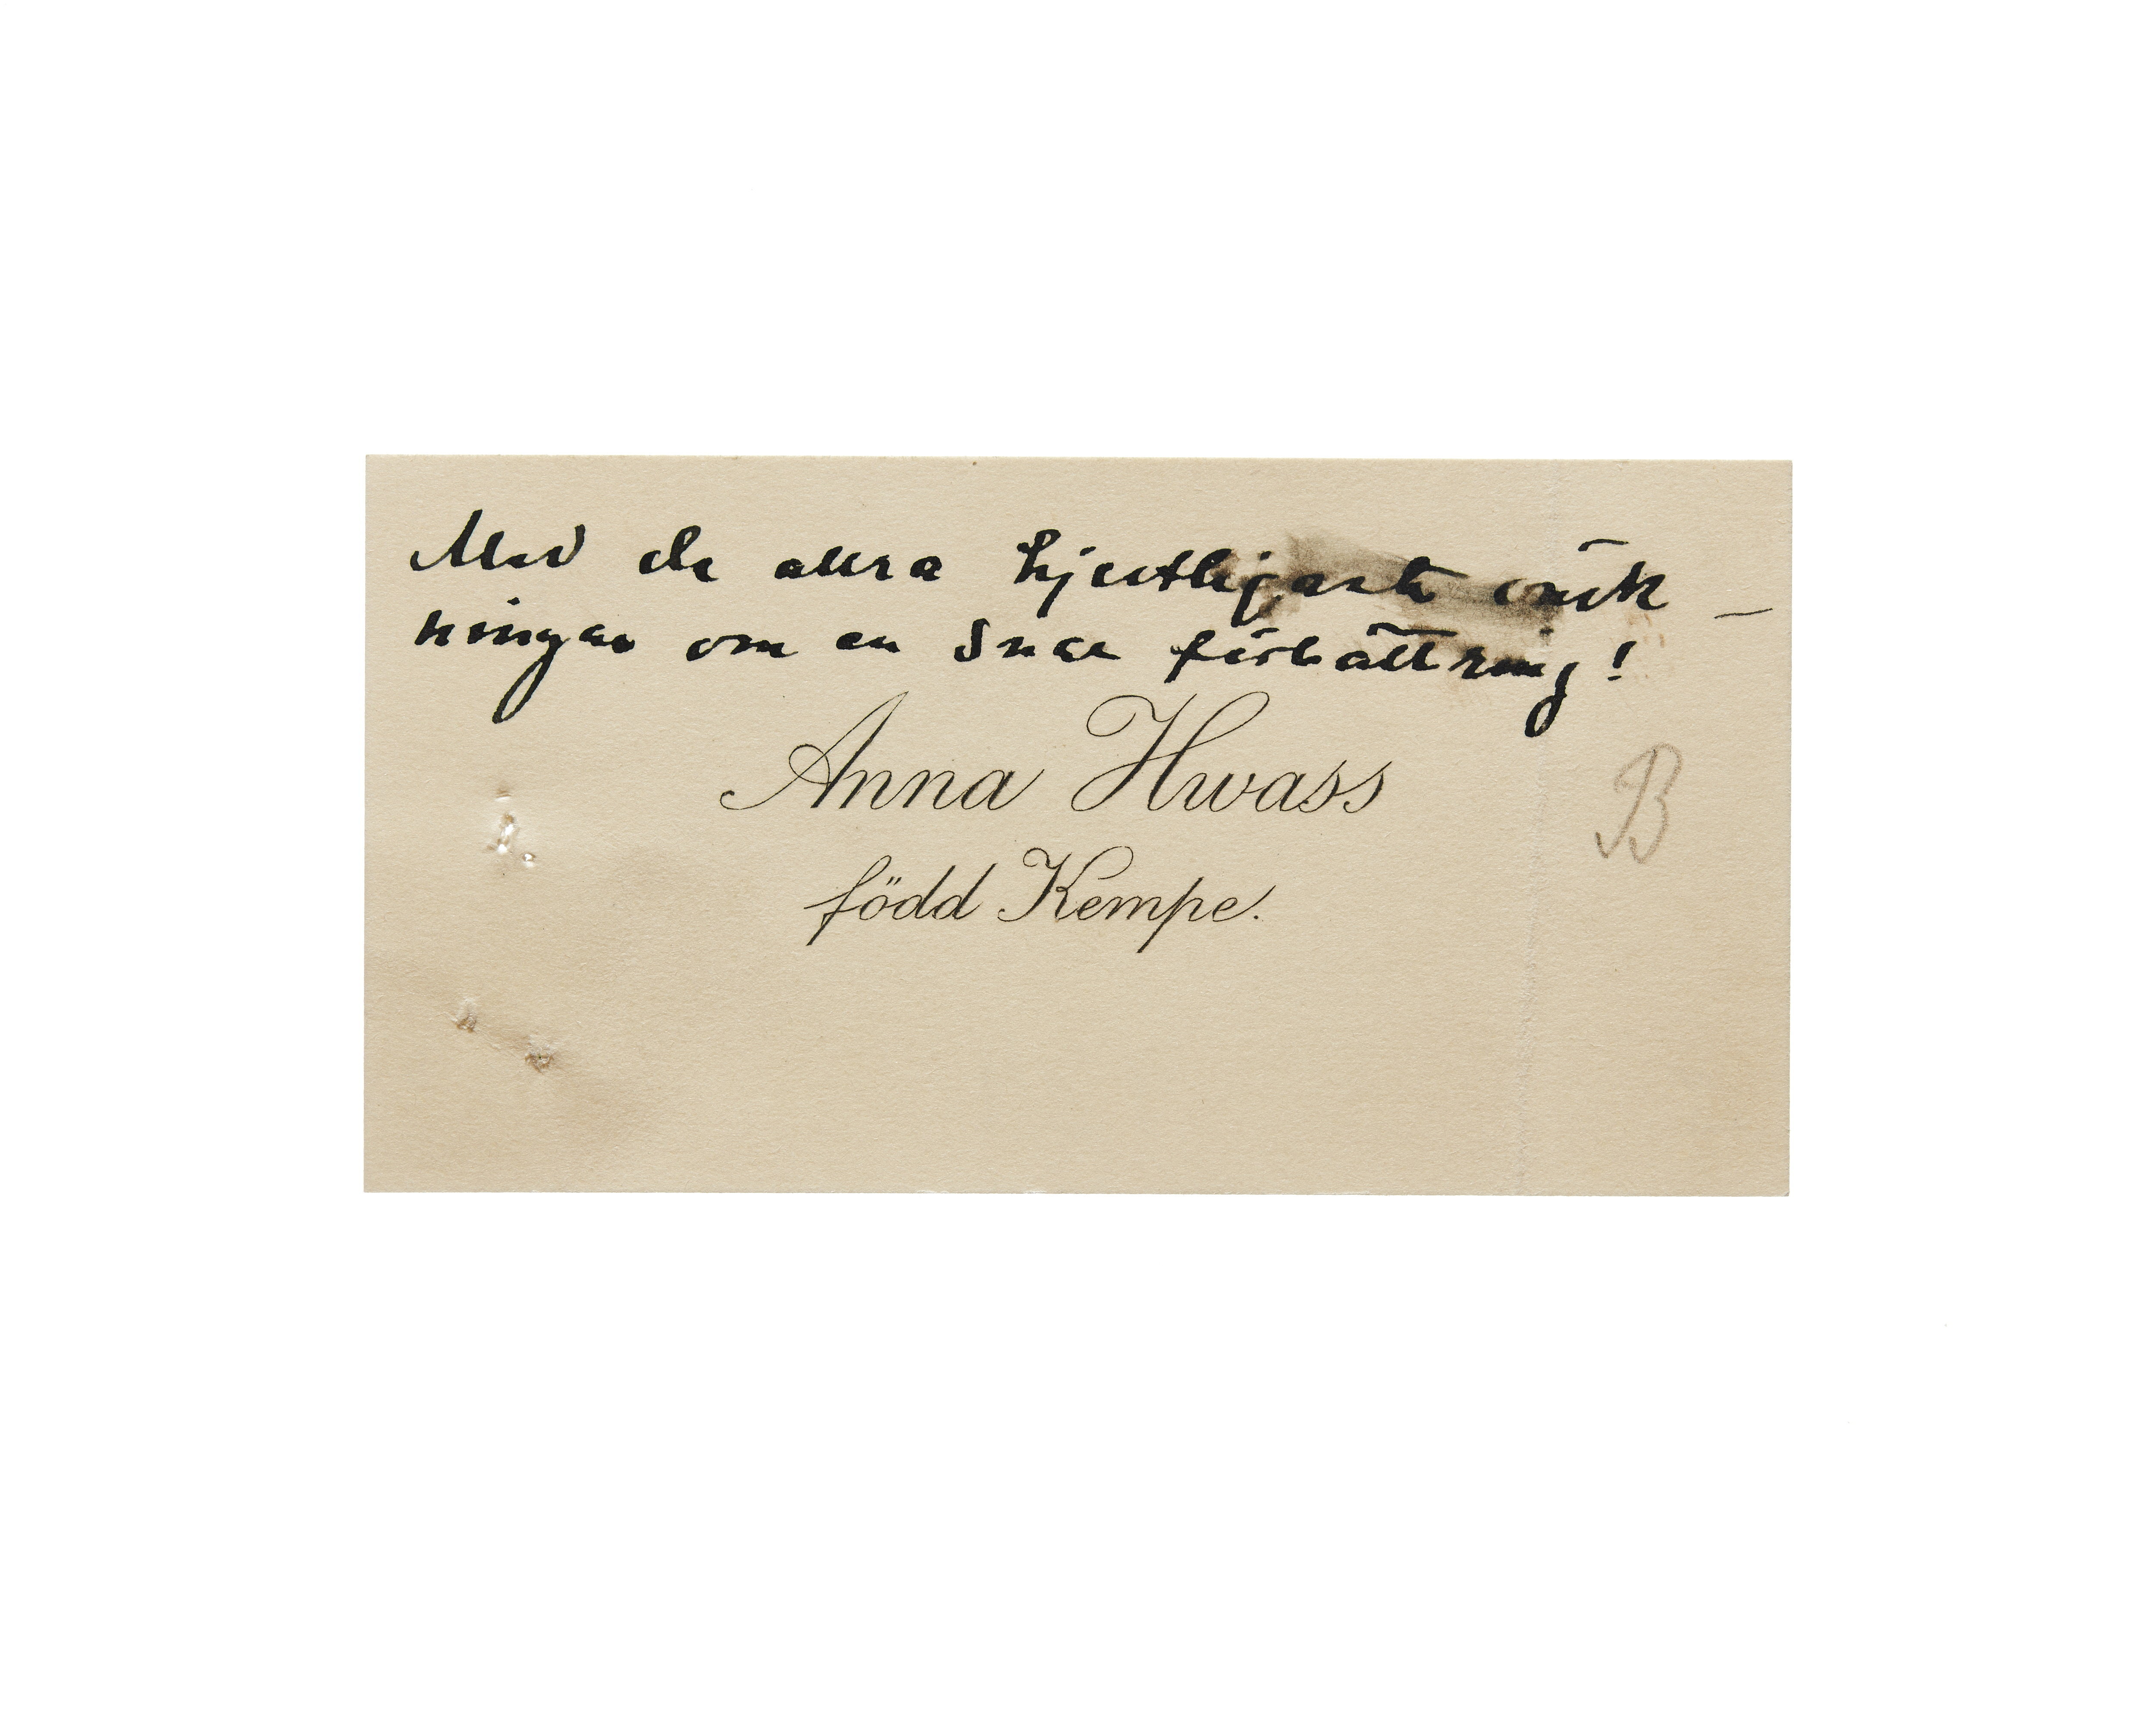 Med de allra hjertligaste önsk-
ningar om en snar förbättring!
Anna Hwass
född Kempe.
B